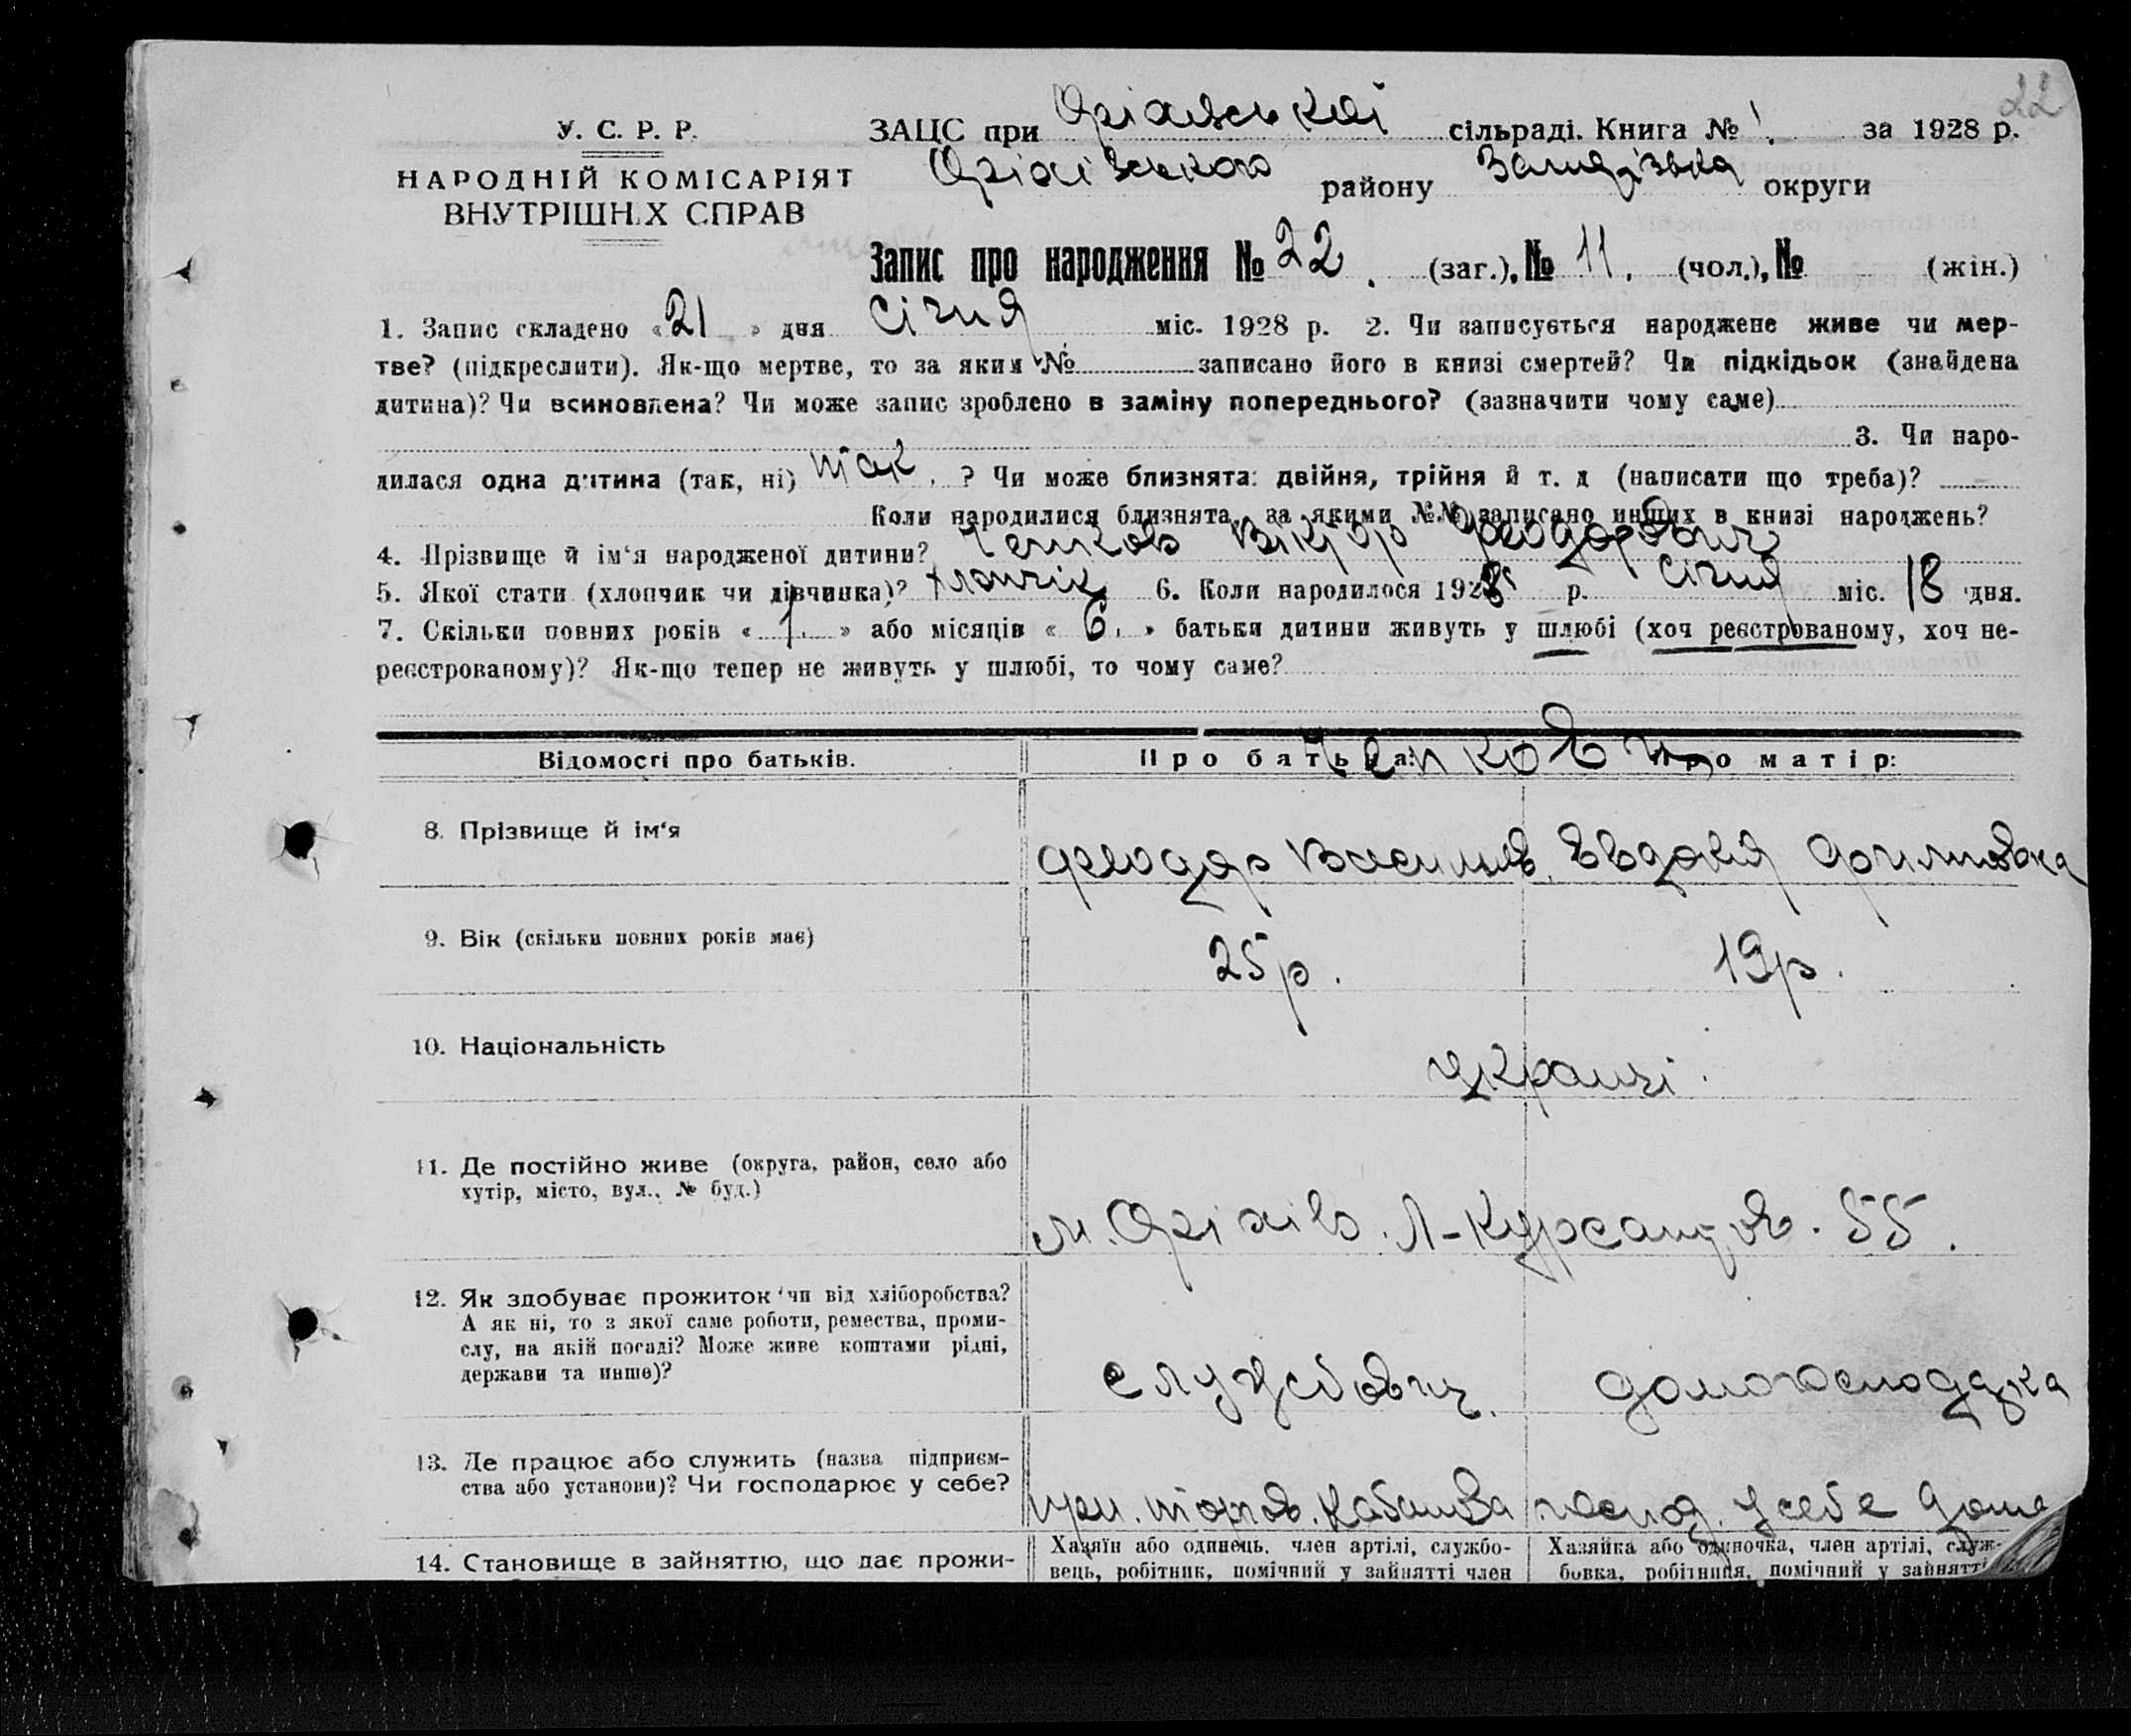 22
У. С. Р. Р.
НАРОДНІЙ КОМІСАРІЯТ
ВНУТРІШНІХ СПРАВ
ЗАЦС при Оріхівській сільраді. Книга № 1. за 1928 р.
Оріхівського району округи
Запис про народження № 22. (заг.), № 11. (чол.), № (жін.)
1. Запис складено «21» дня січня міс. 1928 р. 2. Чи записується народжене живе чи мер-
тве? (підкреслити). Як-що мертве, то за яким № записано його в книзі смертей? Чи підкідьок (знайдена
дитина)? Чи всиновлена? Чи може запис зроблено в заміну попереднього? (зазначити чому саме)
3. Чи наро-
дилася одна дитина (так, ні) так. ? Чи може близнята: двійня, трійня й т. д (написати що треба)?
Коли народилися близнята, за якими №№ записано инших в книзі народжень?
4. Прізвище й ім‘я народженої дитини? Віктор Феодорович
5. Якої стати (хлопчик чи дівчинка)? хлопчік 6. Коли народилося 1928 р. січня міс. 18 дня.
7. Скільки повних років «1.» або місяців «6.» батьки дитини живуть у шлюбі (хоч реєстрованому, хоч не-
реєстрованому)? Як-що тепер не живуть у шлюбі, то чому саме?
Відомості про батьків. Про батька: Про матір:
8. Прізвище й ім‘я
Феодор Васильов. Евдокія
9. Вік (скільки повних років має) 25 р. 19 р.
10. Національність
українці.
11. Де постійно живе (округа, район, село або
хутір, місто, вул., № буд.)
м. Оріхів. Л-Курсантів. 55.
12. Як здобуває прожиток чи від хліборобства?
А як ні, то з якої саме роботи, ремества, проми-
слу, на якій посаді? Може живе коштами рідні,
держави та инше)?
службовець. домогосподарка
13. Де працює або служить (назва підприєм-
ства або установи)? Чи господарює у себе?
при. торгов. господ. у себе дома
14. Становище в зайняттю, що дає прожи-
Хазяїн або одинець, член артілі, службо-
вець, робітник, помічний у зайнятті член
Хазяйка або одиночка, член артілі, служ-
бовка, робітниця, помічний у зайнятті